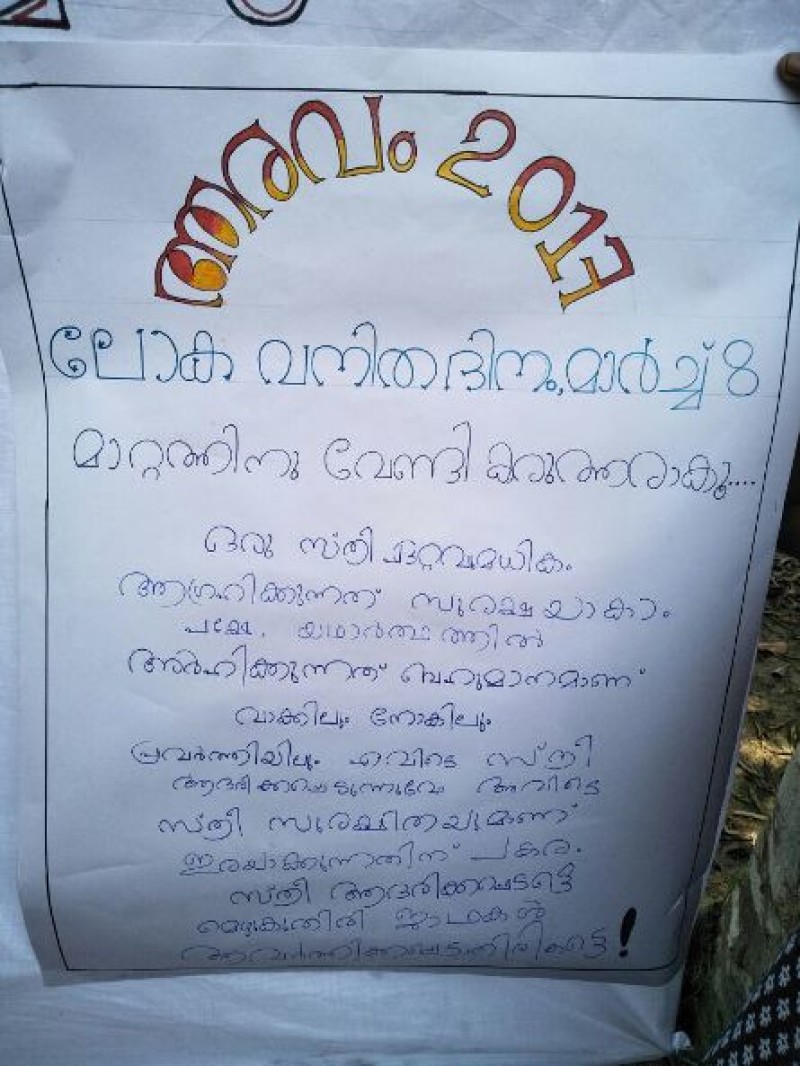 ആരവം 2017
ലോക വനിതദിനം, മാർച്ച് 8
മാറ്റത്തിനു വേണ്ടി കരുത്തരാകൂ....
ഒരു സ്ത്രീ ഏറ്റവുമധികം
ആഗ്രഹിക്കുന്നത് സുരക്ഷയാകാം
പക്ഷേ, യഥാർത്ഥത്തിൽ
അർഹിക്കുന്നത് ബഹുമാനമാണ്
വാക്കിലും നോക്കിലും
പ്രവർത്തിയിലും എവിടെ സ്ത്രീ
ആദരിക്കപ്പെടുന്നുവോ അവിടെ
സ്ത്രീ സുരക്ഷിതയുമാണ്
ഇരയാക്കുന്നതിന് പകരം
സ്ത്രീ ആദരിക്കപ്പെടട്ടെ
മെഴുകുതിരി ജാഥകൾ
ആവർത്തിക്കപ്പെടാതിരിക്കട്ടെ!